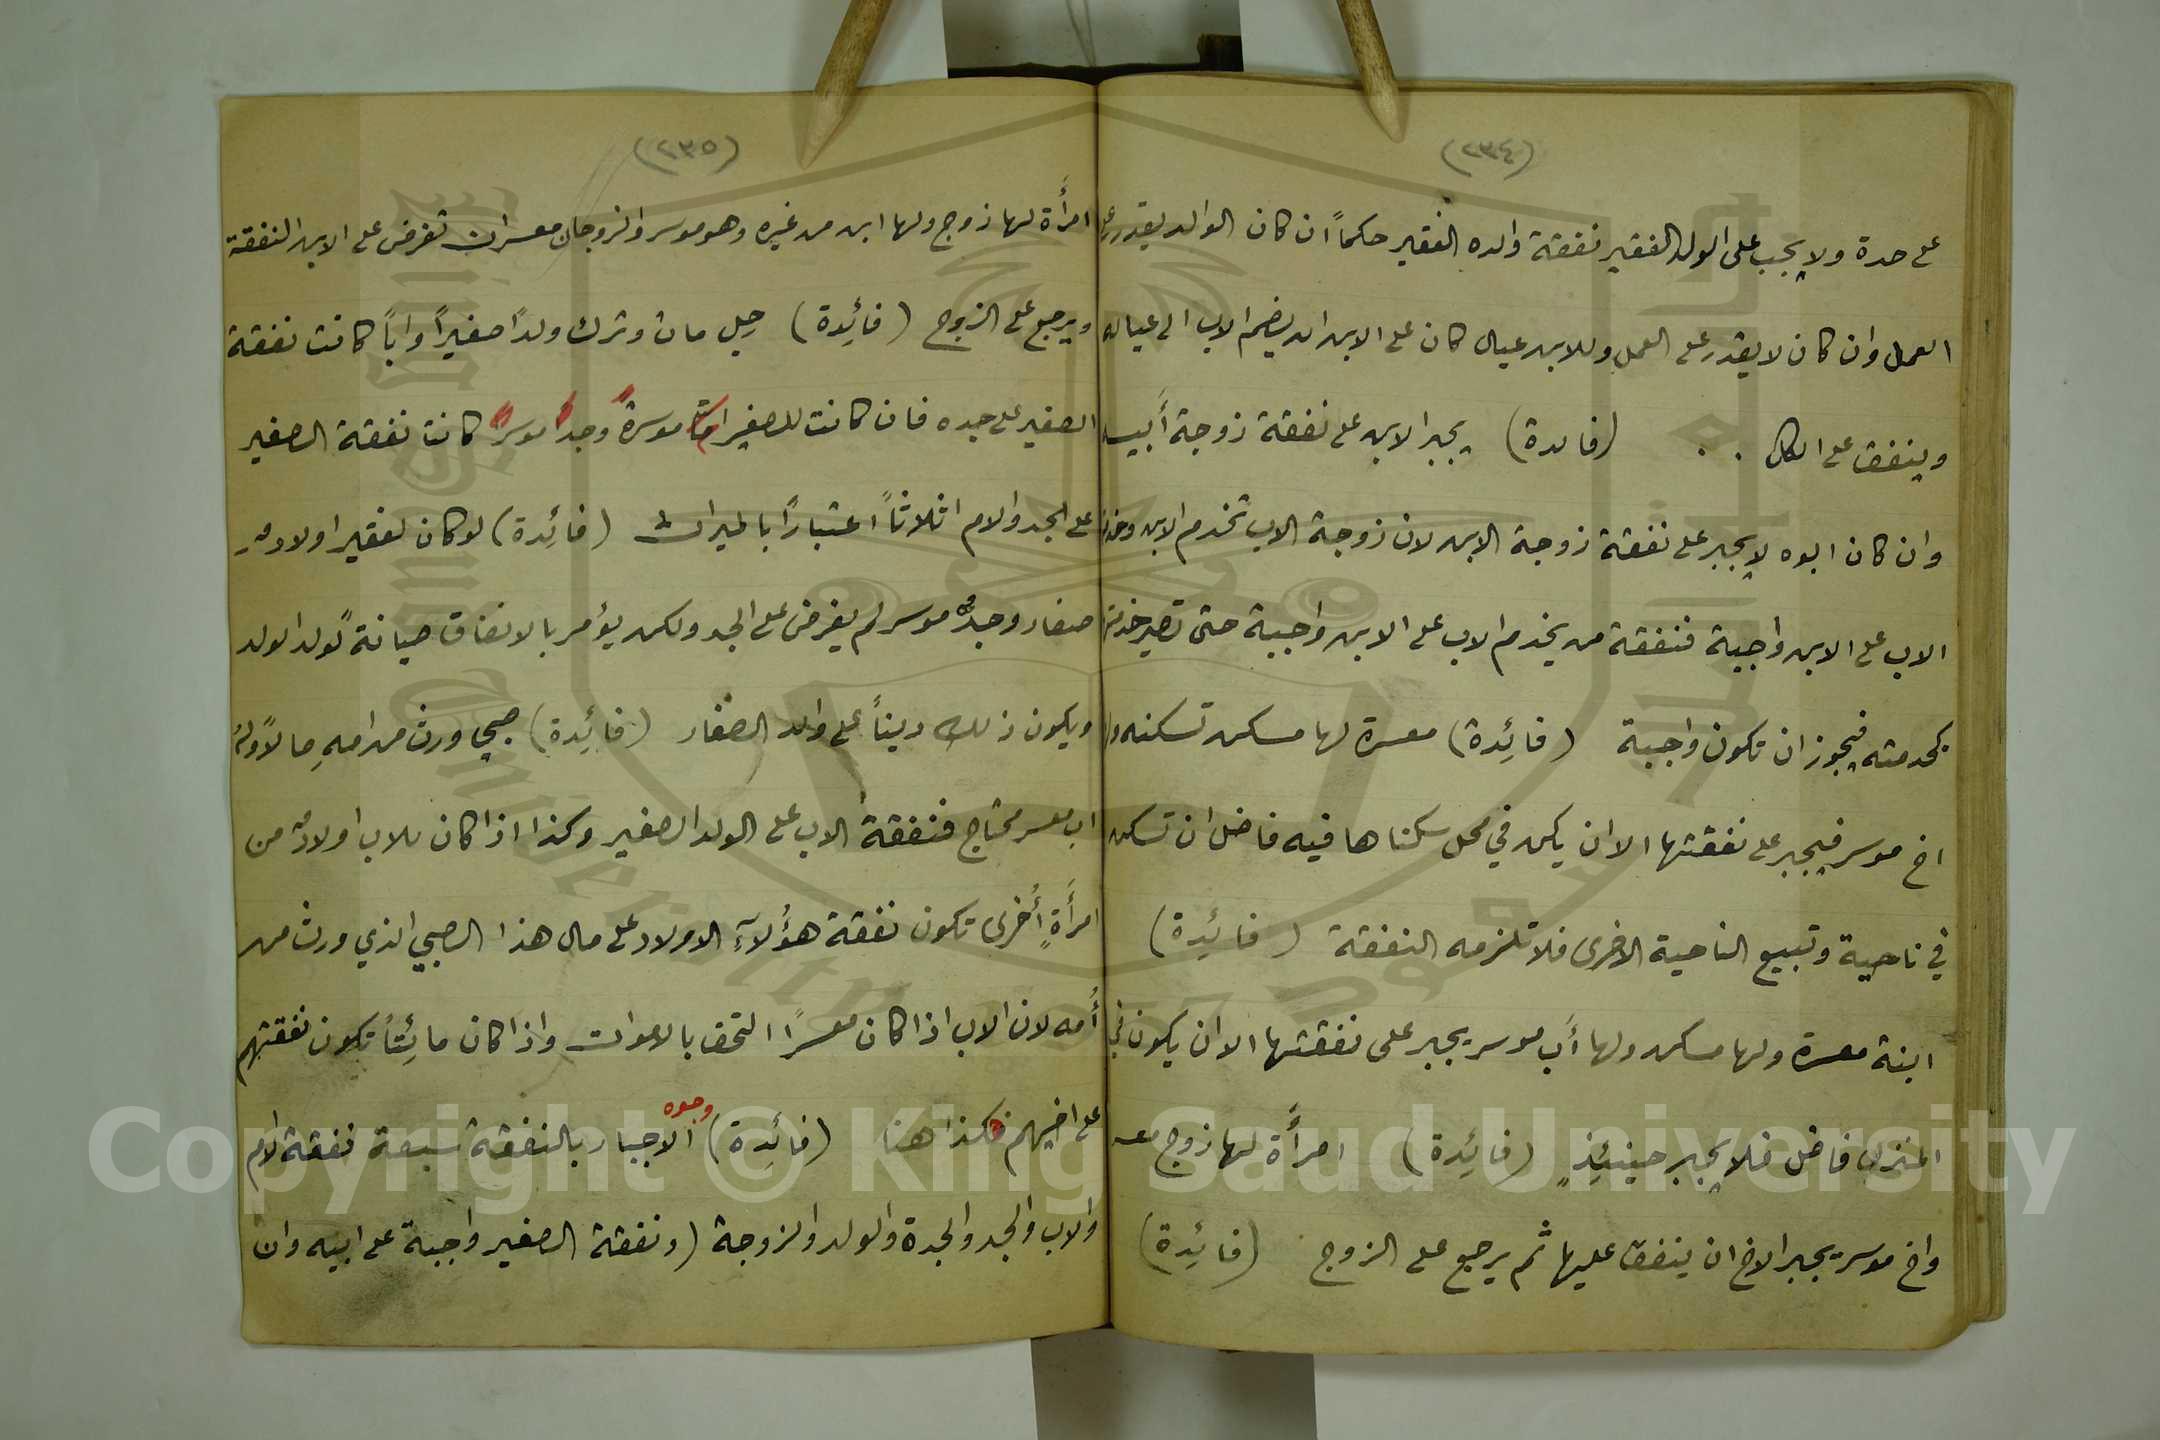 (٢٣٤)
على حدة ولا يجب على الولد الفقير نفقة والده الفقير حكماً ان كان الوالد يقدر على
العمل وان كان لا يقدر على العمل وللابن عيال كان على الابن ان يضم الاب الى عياله
وينفق على الكل . . (فائدة) يجبر الابن على نفقة زوجة أبيه
وان كان ابوه لا يجبر على نفقة زوجة الابن لان زوجة الاب تخدم الابن وخدمة
الاب على الابن واجبة فنفقة من يخدم الاب على الابن واجبة حتى تصير خدمتها
كخدمته فيجوز ان تكون واجبة (فائِدة) معسرة لها مسكن تسكنه ولها
اخ موسر فيجبر على نفقتها الا ان يكن في محل سكناها فيه فاضل ان تسكن
في ناحية وتبيع الناحية الاخرى فلا تلزمه النفقة (فائِدة)
ابنة معسرة ولها مسكن ولها أب موسر يجبر على نفقتها الا ان يكون في
المنزل فاضل فلا يجبر حينئِذٍ (فائِدة) امرأَة لها زوج معسر
واخ موسر يجبر الاخ ان ينفق عليها ثم يرجع على الزوج (فائِدة)
(٢٣٥)
امرأَة لها زوج ولها ابن من غيره وهو موسر والزوجان معسران تفرض على الابن النفقة
ويرجع على الزوج (فائِدة) رجل مات وترك ولدًا صغيراً واباً كانت نفقة
الصغير على جده فان كانت للصغير امٌّ موسرةٌ وجدٌ موسرٌ كانت نفقة الصغير
على الجد والام اثلاثاً اعتبارًا بالميراث (فائِدة) لو كان لفقير اولادٌ
صغار وجدٌّ موسر لم يفرض على الجد ولكن يؤمر بالانفاق صيانةً لولد الولد
ويكون ذلك ديناً على والد الصغار (فائِدة) صبي ورث من امهِ مالاً وله
اب معسر محتاج فنفقة الاب على الولد الصغير وكذا اذا كان للاب اولادٌ من
امرأَةٍ أُخرى تكون نفقة هؤُلآءِ الاولاد على مال هذا الصبي الذي ورث من
أُمه لان الاب اذا كان معسرًا التحق بالاموات واذا كان مائِتاً تكون نفقتهم
على اخيهم فكذا هنا (فائِدة) وجوه الاجبار بالنفقة سبعة نفقة الام
والاب والجد والجدة والولد والزوجة (ونفقة الصغير واجبة على ابيه وان
Copyright © King Saud University